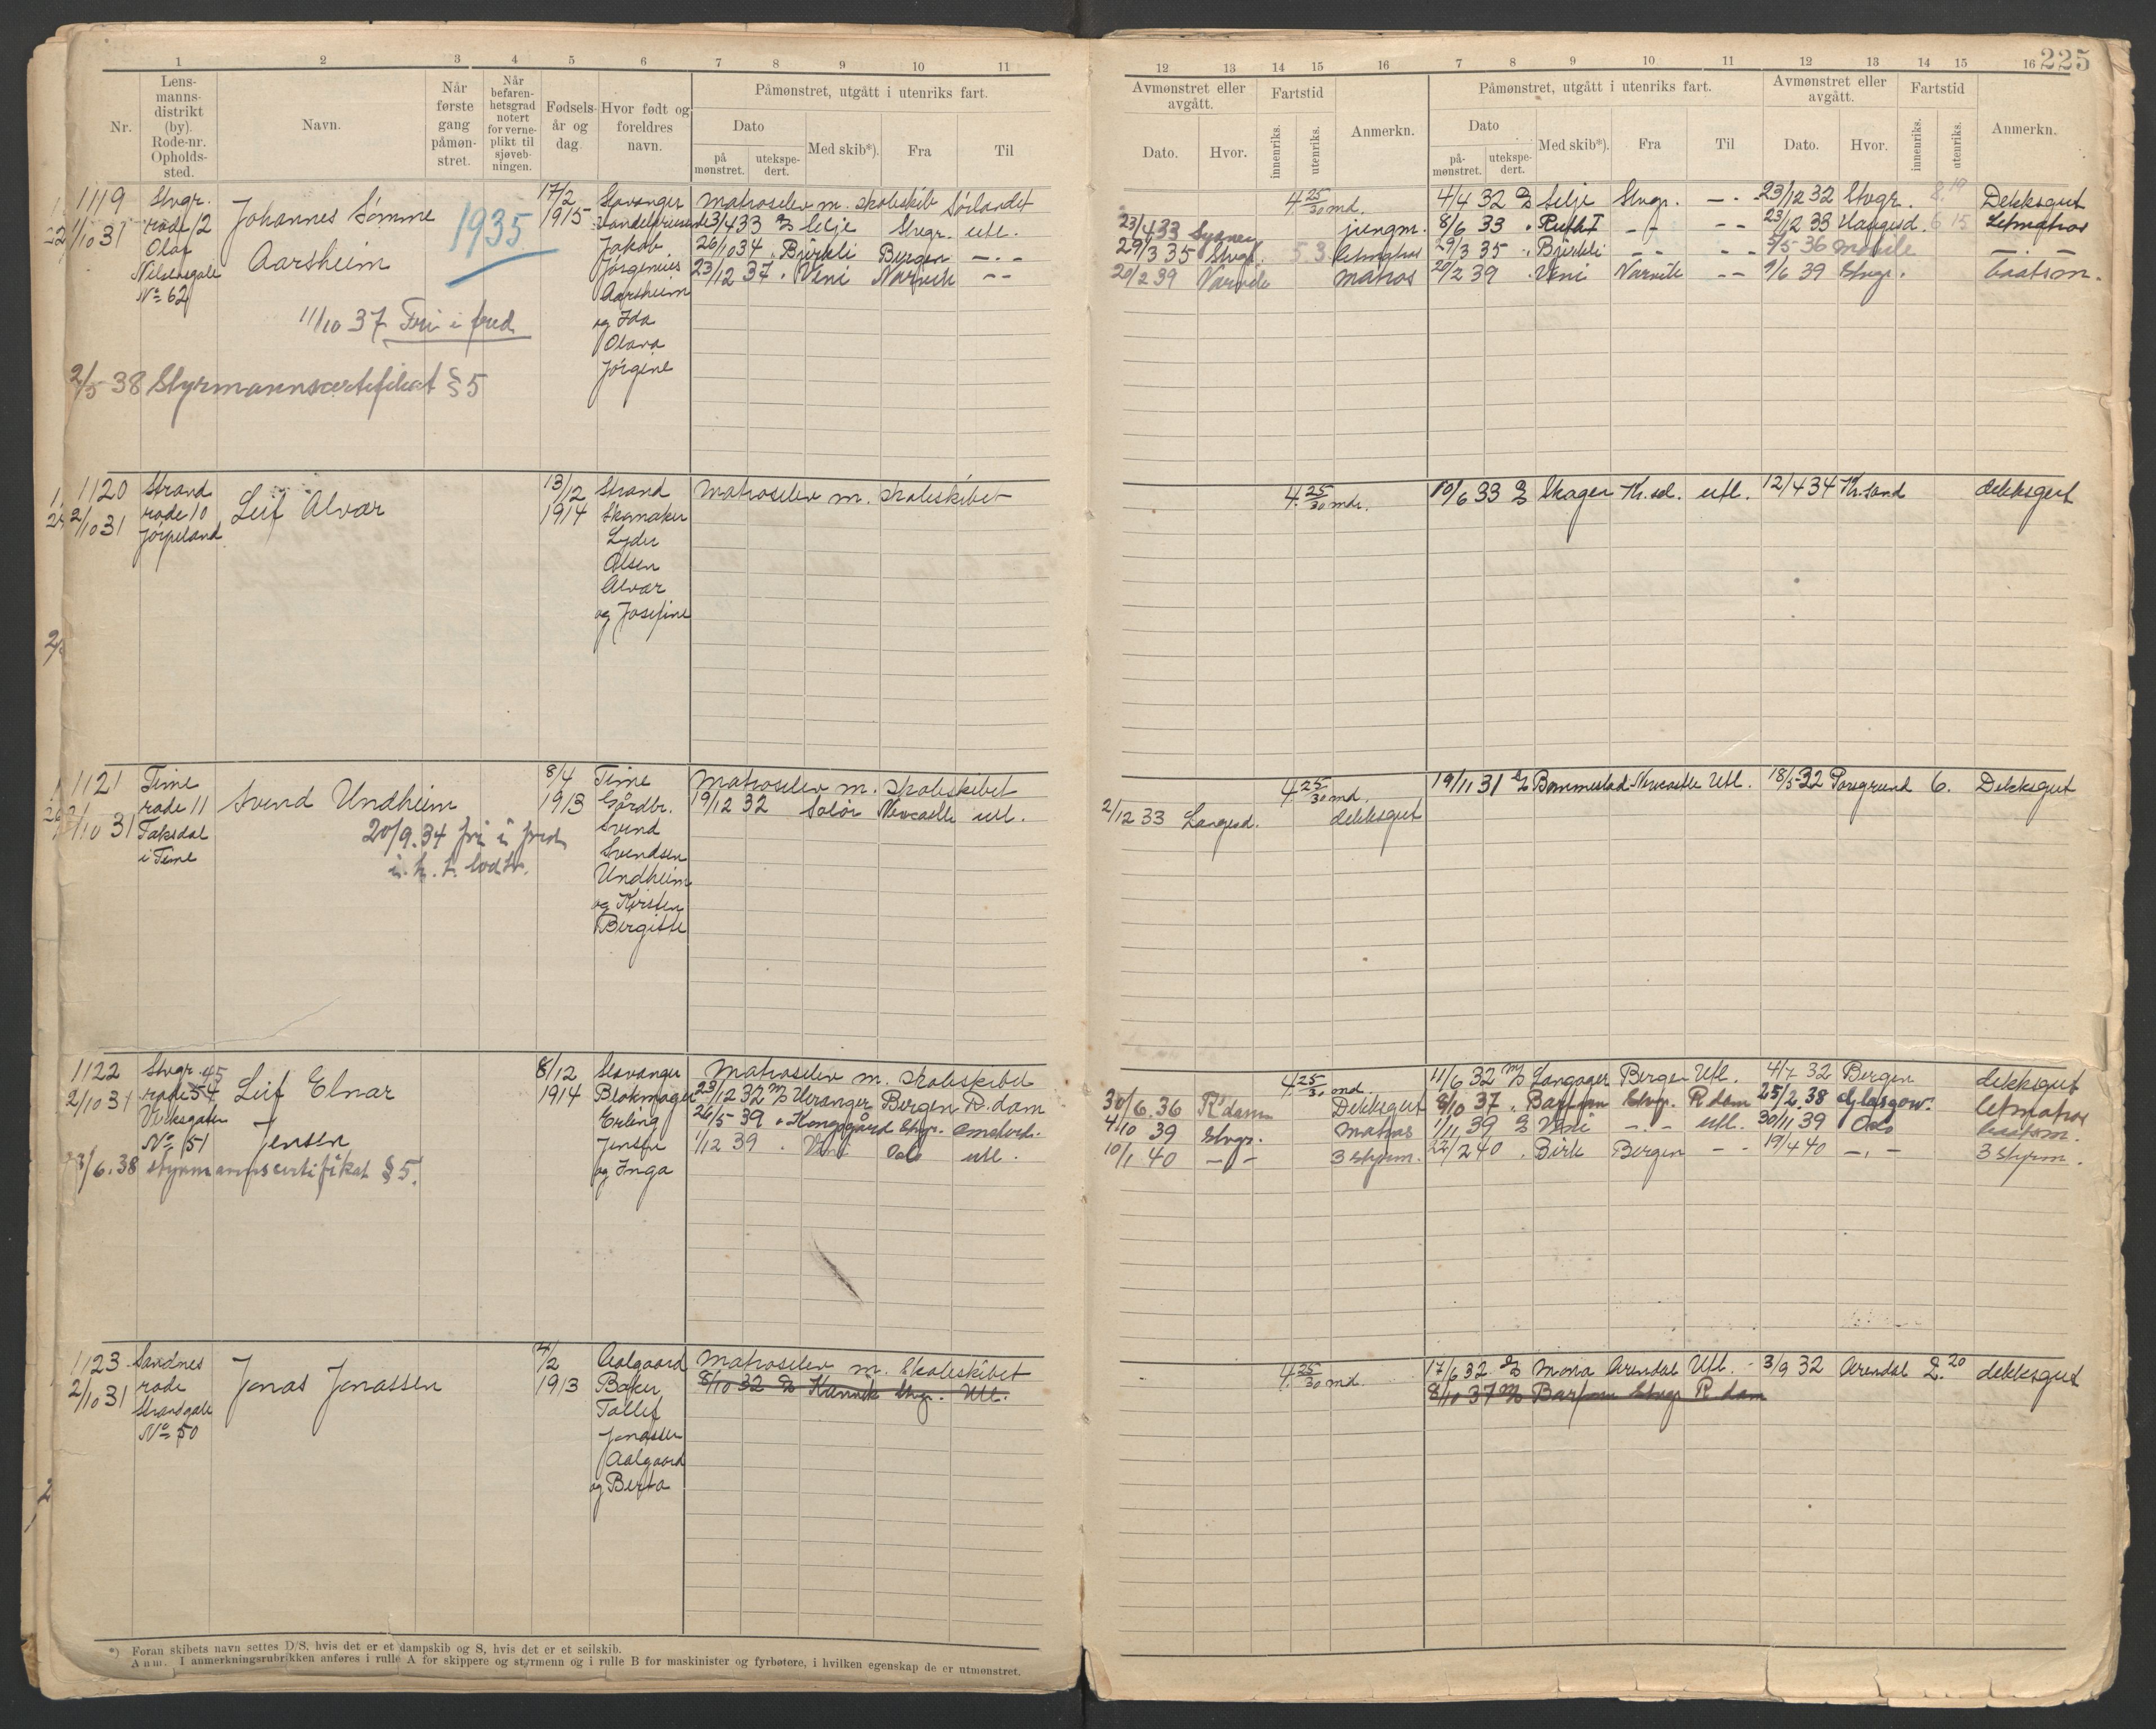 225
1 2 3 4 5 6 7 8 9 10 11
Nr. Lens-
manns-
distrikt
(by).
Rode-nr.
Opholds-
sted.
Navn.
Når
første
gang
påmøn-
stret.
Når
befaren-
hetsgrad
notert
for verne-
plikt til
sjøveb-
ningen.
Fødsels-
år og
dag.
Hvor født og
foreldres
navn.
Påmønstret, utgått i utenriks fart.
Dato
på
mønstret.
utekspe-
dert.
Med skib*).
Fra
Til
12 13 14 15 16 7 8 9 10 11 12 13 14 15 16
Avmønstret eller
avgått.
Dato. Hvor.
Fartstid
innenriks. utenriks.
Anmerkn.
Påmønstret, utgått i utenriks fart.
Dato
på-
mønstret.
utekspe-
dert.
Med skib*).
Fra
Til
Avmønstret eller
avgått.
Dato. Hvor.
Fartstid
innenriks. utenriks.
Anmerkn.
1119
1/10 31
Stvgr.
rode 12
Olaf
Nilsensgate
No 62
Johannes Sømme
Aarsheim
1935
11/10 37 Fri i fred
2/5 38 Styrmannscertifikat § 5
17/2
1915
Stavanger
Jakob
Jørgenius
Aarsheim
og Ida
Olava
Jørgine
Matroselev m. skoleskib Sørlandet
3/4 33 Selje Stvgr. utl.
26/10 34 . Björkli Bergen — . —
23/12 37 . Veni Narvik — —
4 25/30 md.
23/4 33 Sydney jungm.
29/3 35 Stvgr. 5 3 letmatros
20/2 39 Narvik Matros
4/4 32 Selje Stvgr. — . 23/12 32 Stvgr. 8. 19 Dekksgut
8/6 33 . — — — — 23/12 33 Haugesd. 6 15 Letmatros
29/3 35 . Björkli — — — — 5/5 36 — —
20/2 39 . Veni Narvik — — 9/6 39 Stvgr. baatsm.
1120
2/10 31
Strand
rode 10
Jørpeland
Leif Alvar
13/12
1914
Strand
Skomaker
Lyder
Olsen
Alvar
og Josefine
Matroselev m. skoleskibet
4. 25/30 md.
10/6 33 Skager Kr.sd. utl. 12/4 34 Kr.sand dekksgut
1121
2/10 31
Time
rode 11
Taksdal
i Time
Svend Undheim
20/9.34 fri i fred
8/4
1913
Time
Gårdbr.
Svend
Svendsen
Undheim
og Kirsten
Bergitte
Matroselev m. skoleskibet
19/12 32 Solør Newcastle utl.
4. 25/30 md.
2/12 33 Langesd. dekksgut
19/11 31 Bommestad Newcastle Utl. 18/5 32 Porsgrund 6. Dekksgut
1122
2/10 31
Stvgr. 45
rode 54
Viksgaten
No 51
Leif Elnar
Jensen
23/6.38 styrmannscertifikat § 5.
8/12
1914
Stavanger
Blokmager
Erling
Jensen
og Inga
Matroselev m. skoleskibet
23/12 32 Veranger Bergen R.dam
26/5 39 . Kongsgård Stvgr. Amsterd.
1/12 39 . Veni Oslo utl.
4. 25/30 md.
30/6.36 R'dam Dekksgut
4/10 39 Stvgr. Matros
10/1 40 — — 3 styrm.
11/6 32 Langager Bergen Utl. 4/7 32 Bergen dekksgut
8/10 37 . Barfonn Stvgr. R dam 25/2.38 Glasgow. letmatros
1/11 39 Veni — . — utl. 30/11 39 Oslo baatsm.
22/2 40 . Birk Bergen — — 19/4 40 — . — 3 styrm.
1123
2/10 31
Sandnes
rode
Strandgate
No 50
Jonas Jonassen
4/2
1913
Aalgaard
Baker
Tollef
Jonassen
Aalgaard
og Berta
Matroselev m. Skoleskibet
8/10 32 Kinnik Stvgr. Utl.
4. 25/30 md.
17/6 32 Mona Arendal Utl. 3/9 32 Arendal 2. 20 dekksgut
8/10 37 Barfonn Stvgr R.dam
*) Foran skibets navn settes D/S, hvis det er et dampskib og S, hvis det er et seilskib.
Anm. I anmerkningsrubrikken anføres i rulle A for skippere og styrmenn og i rulle B for maskinister og fyrbøtere, i hvilken egenskap de er utmønstret.